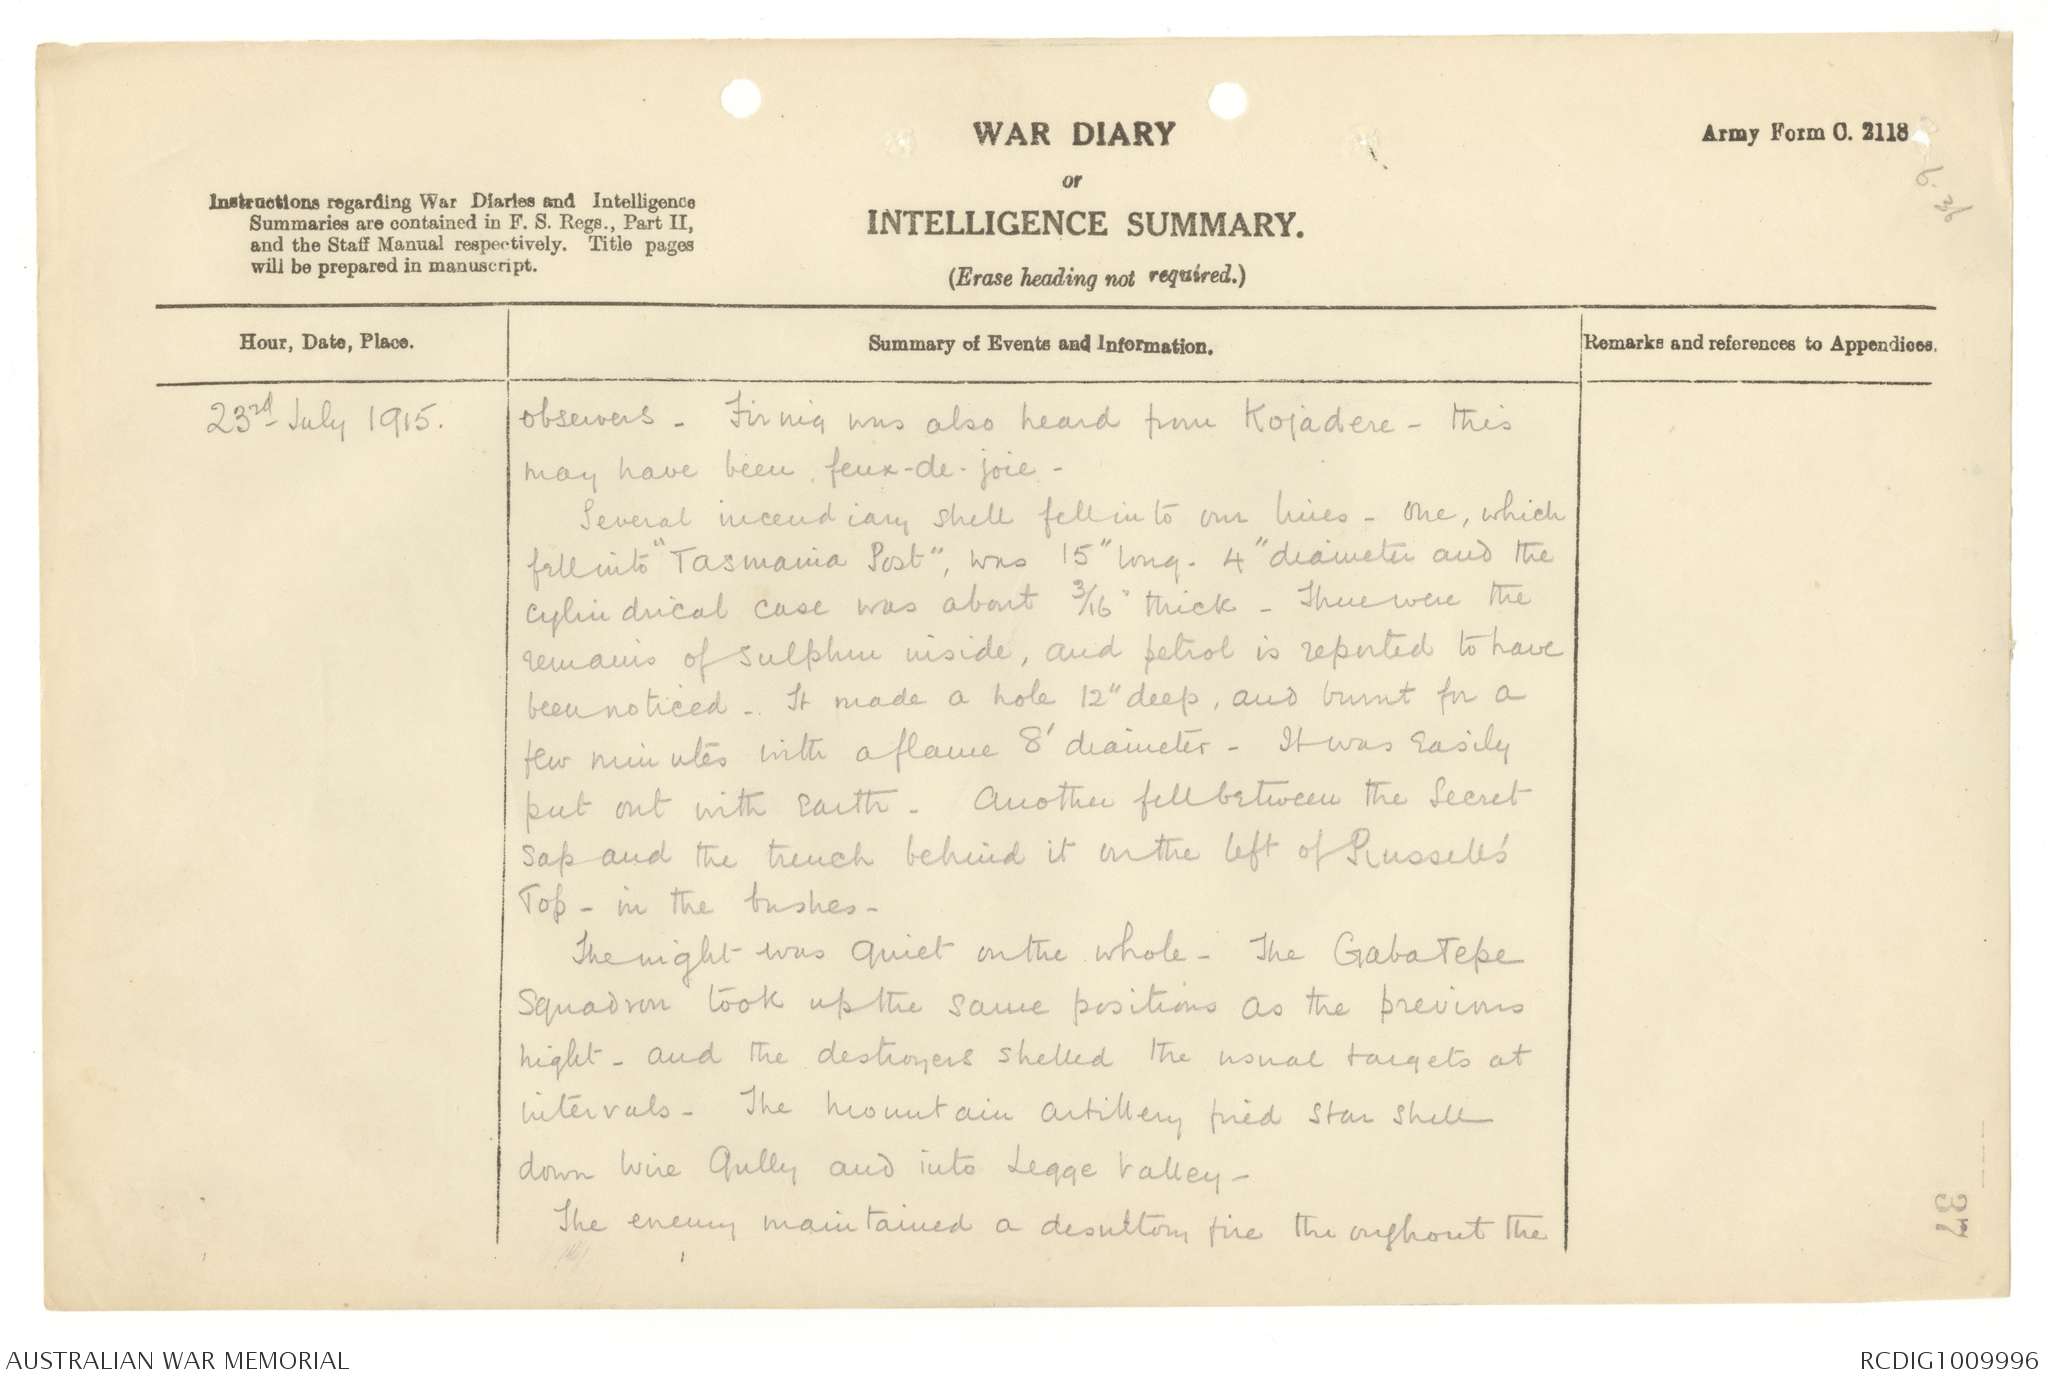 WAR DIARY
or
INTELLIGENCE SUMMARY.
(Erase heading not required.)
Army Form C. 2118
Instructions regarding War Diaries and Intelligence
Summaries are contained in F. S. Regs., Part II,
and the Staff Manual respectively. Title pages
will be prepared in manuscript.
Hour, Date, Place.
Summary of Events and Information.
Remarks and references to Appendices.
23rd July 1915.
observers - Firing was also heard from Kojadere - this
may have been feux-de-joie -
Several incendiary shell fell into our lines - One, which
fell into "Tasmania Post", was 15" long - 4" diameter and the
cylindrical case was about 3/16" thick - There were the
remains of sulphur inside, and petrol is reported to have
been noticed - It made a hole 12" deep, and burnt for a
few minutes with a flame 8' diameter - It was easily
put out with earth - Another fell between the Secret
Sap and the trench behind it on the left of Russell's
Top - in the bushes -
The night was quiet on the whole - The Gaba Tepe
Squadron took up the same positions as the previous
night - and the destroyers shelled the usual targets at
intervals - The mountain artillery fired star shell
down Wire Gully and into Legge Valley -
The enemy maintained a desultory fire throughout the
37
AUSTRALIAN WAR MEMORIAL
RCDIG1009996